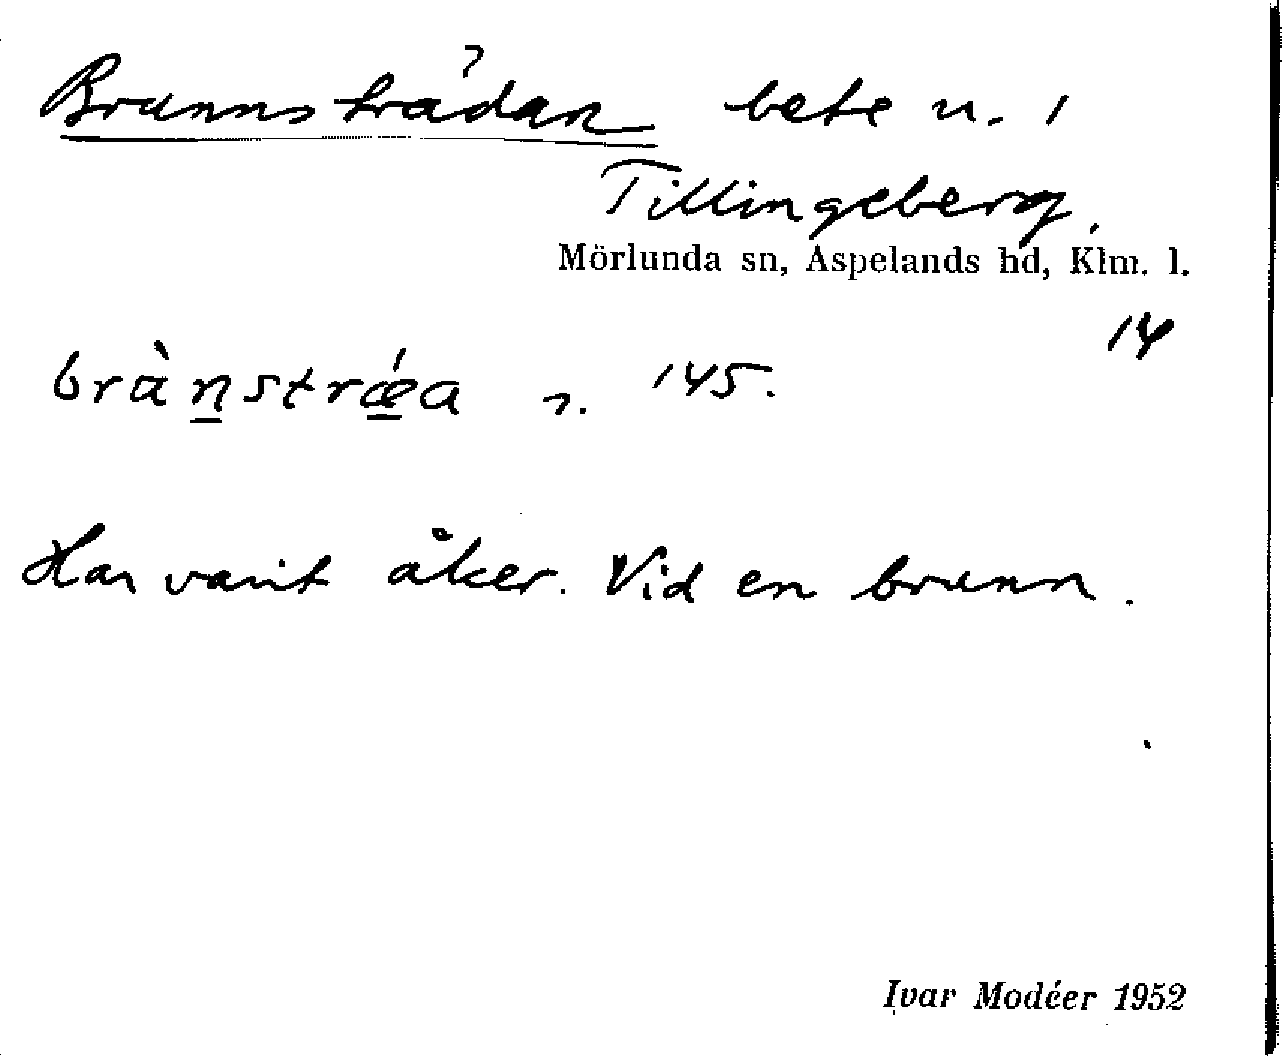 Brunnsträdan bete n. 1
Tillingeberg,
Mörlunda sn, Aspelands hd, Klm. l.
14
brànstrǽa n. 145.
Har varit åker. Vid en brunn.
Ivar Modéer 1952